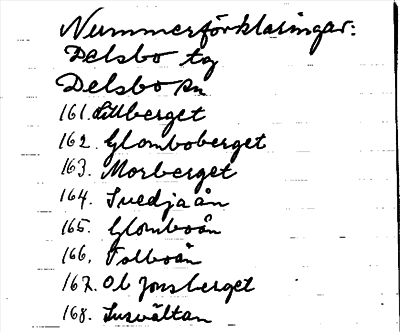 Nummerförklaringar:
Delsbo tg
Delsbo sn
161. Lillberget
162. Glomboberget
163. Morberget
164. Svedjaån
165. Glomboån
166. Tolboån
167. Ol Jonsberget
168. Susvältan